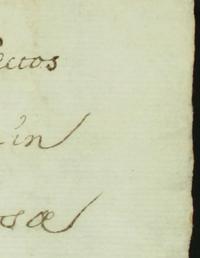 ectos
in
osæ